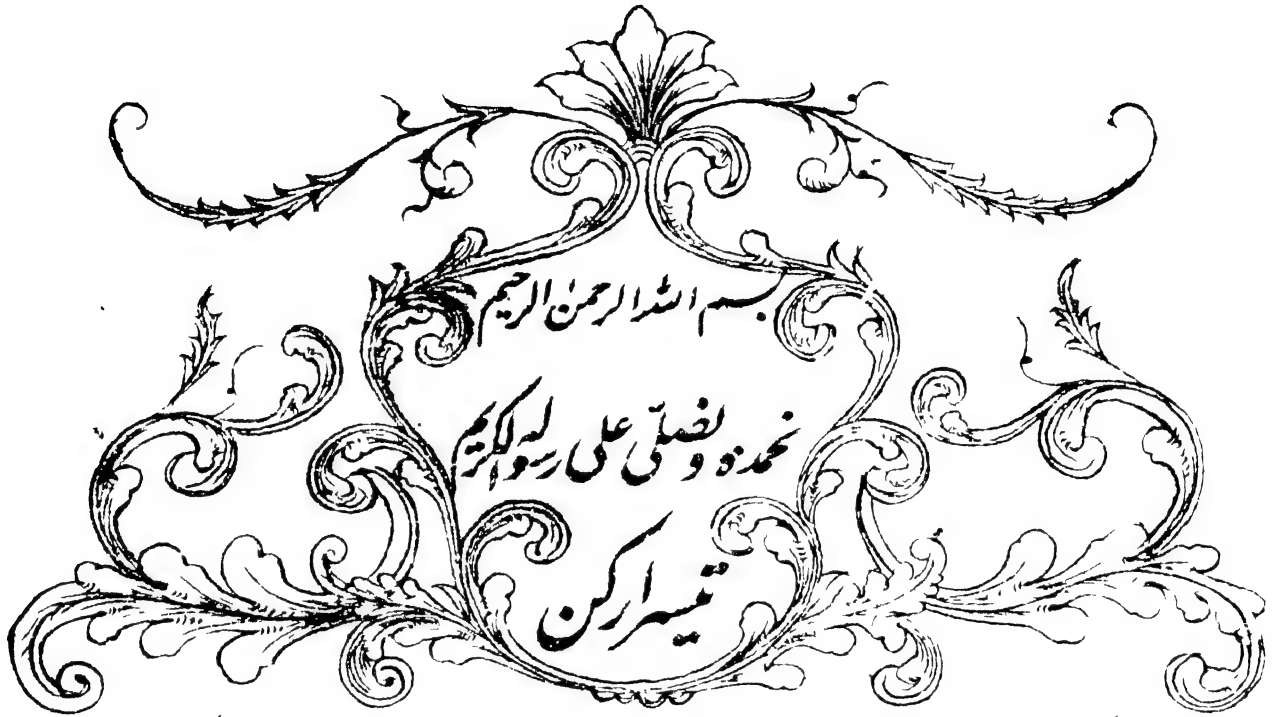 بسم اللہ الرحمٰن الرحیم
نحمدہ ونصلّی علی رسولہ الکریم
تیسرا رکن